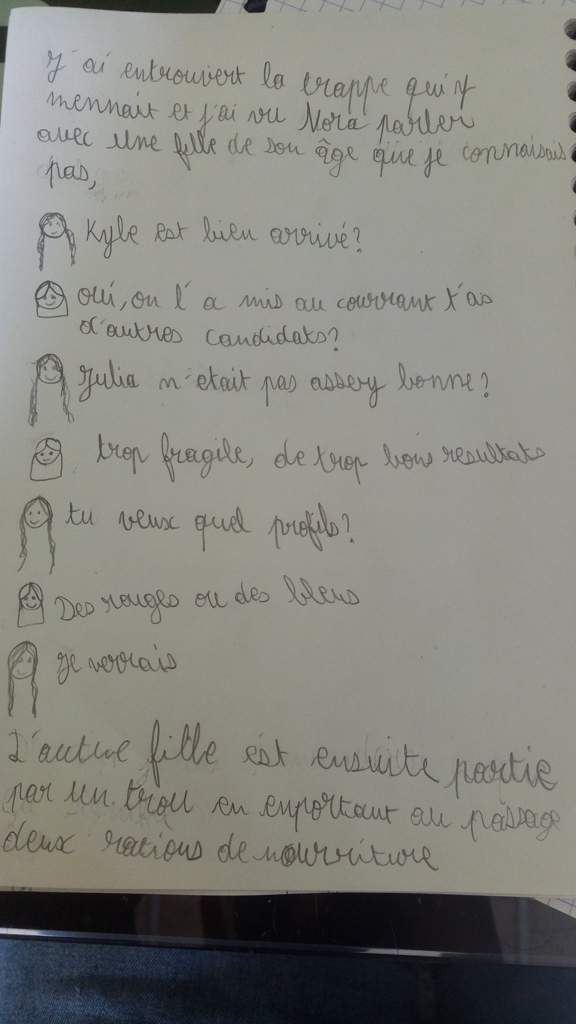 J'ai entrouvert la trappe qui y
mennait et j'ai vu Nora parler
avec une fille de son âge que je connaisais
pas,
Kyle est bien arrivé?
oui, on l'a mis au courrant t'as
d'autres candidats?
Julia n'etait pas assez bonne?
trop fragile, de trop bons resultats
tu veux quel profils?
Des rouges ou des bleus
je verrais
L'autre fille est ensuite partie
par un trou en enportant au passage
deux rations de nourriture